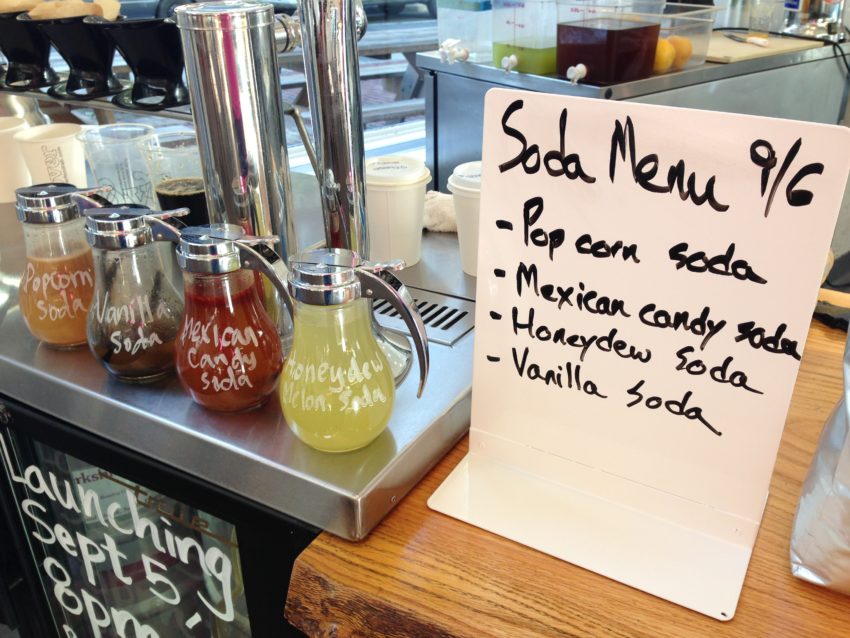 Soda Menu 9/6
- Popcorn soda
- Mexican candy soda
- Honeydew soda
- Vanilla soda
Popcorn
Soda
Vanilla
Soda
Mexican
Candy
soda
Honeydew
Melon Soda
Launching
Sept 5,
8pm